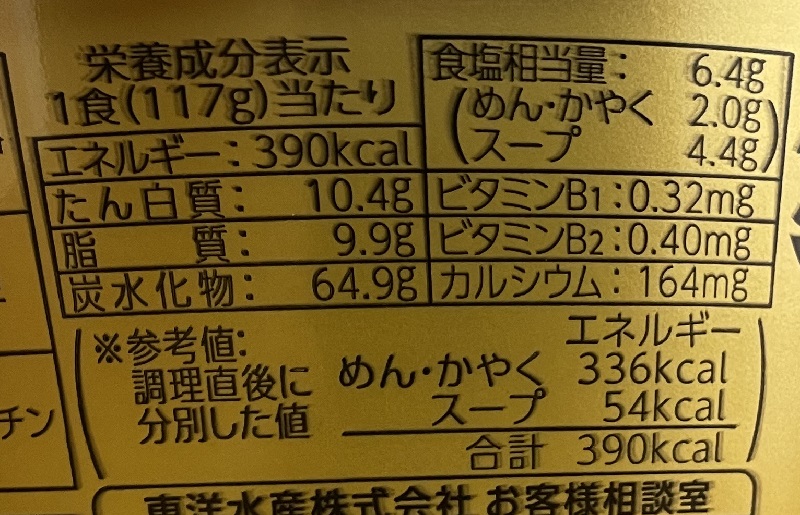 栄養成分表示
1食(117g)当たり
エネルギー：390kcal
たん白質：10.4g
脂質：9.9g
炭水化物：64.9g
食塩相当量：6.4g
(めん・かやく 2.0g
スープ 4.4g)
ビタミンB1：0.32mg
ビタミンB2：0.40mg
カルシウム：164mg
※参考値：
調理直後に
分別した値
エネルギー
めん・かやく 336kcal
スープ 54kcal
合計 390kcal
チン
東洋水産株式会社 お客様相談室